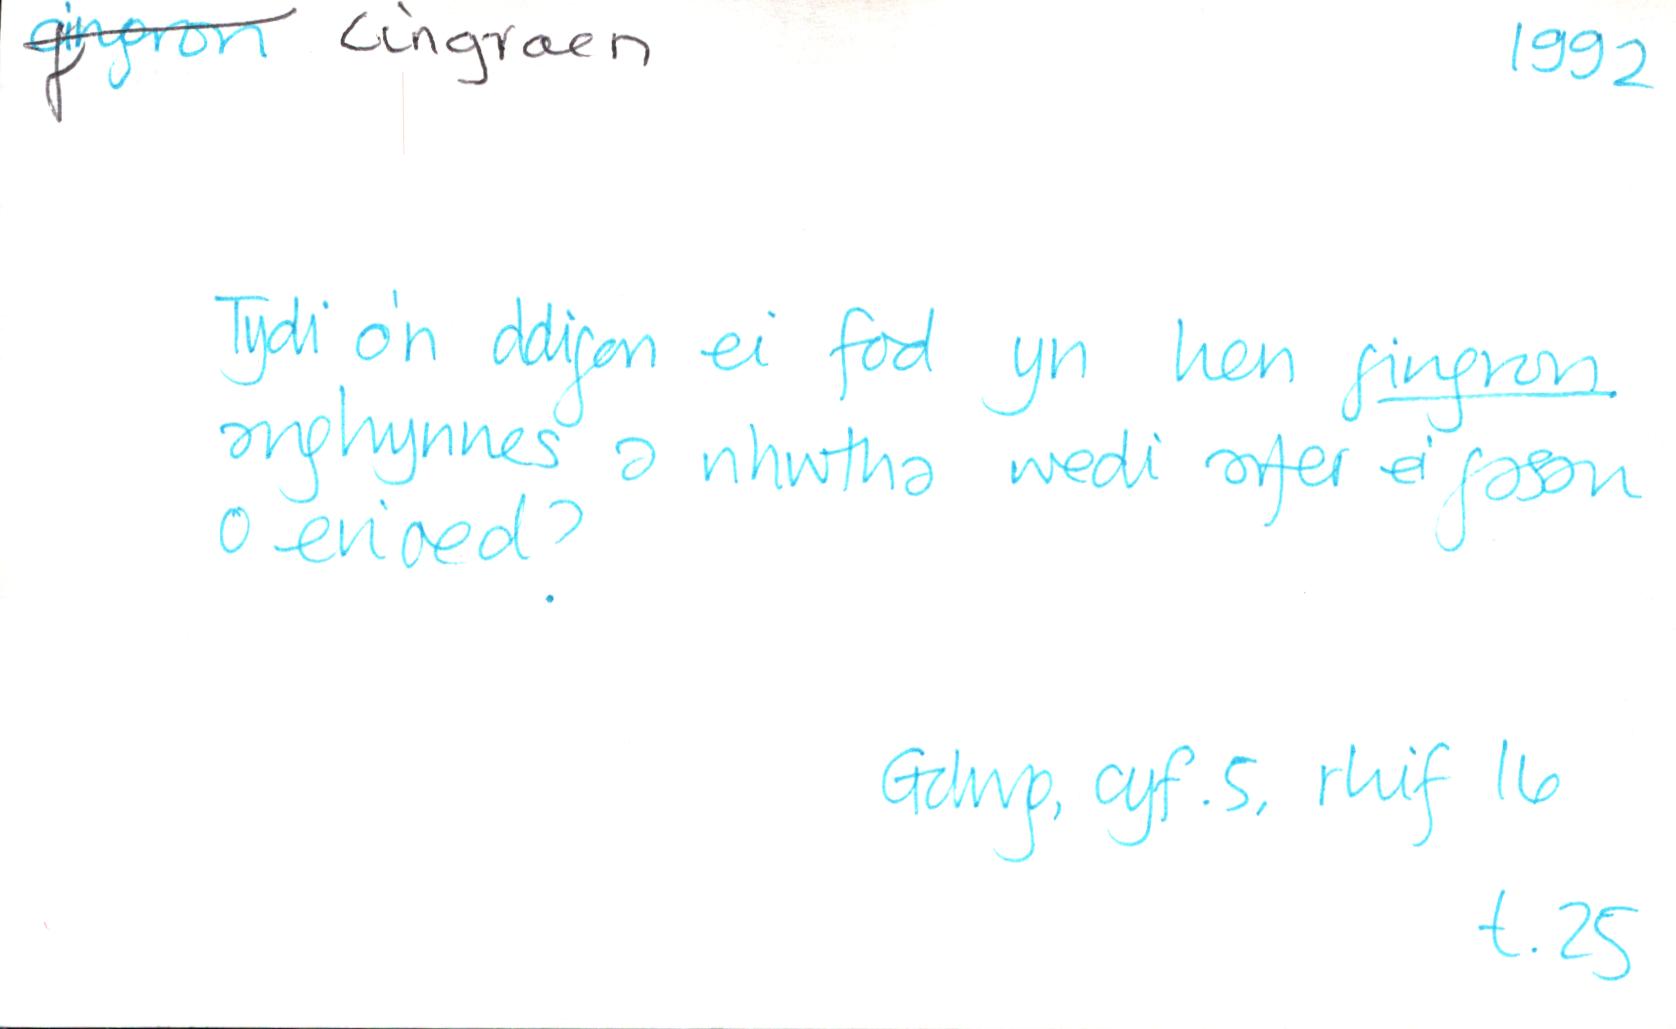 gingron cingroen 1992
Tydi o'n ddigon ei fod yn hen gingron
anghynnes a nhwtha wedi arfer ei gasau
o erioed?
Golwg, cyf. 5, rhif 16
t. 25